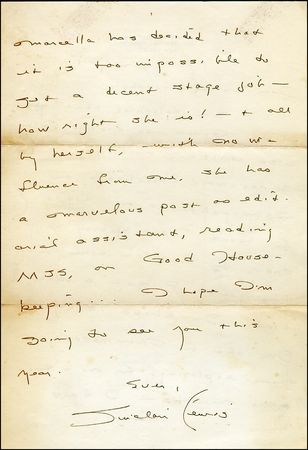 Marcella has decided that
it is too impossible to
get a decent stage job —
how right she is! — + all
by herself, with no in-
fluence from me, she has
a marvelous post as edit-
orial assistant, reading
MSS, on Good House-
keeping... I hope I'm
going to see you this
year.
Ever,
Sinclair Lewis